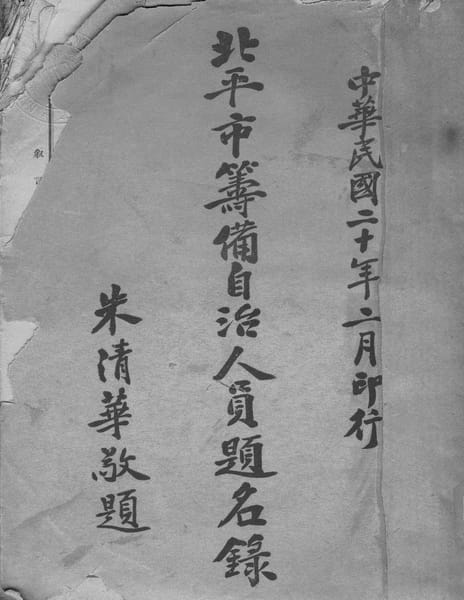 中華民國二十年二月印行
北平市籌備自治人員題名錄
朱清華敬題